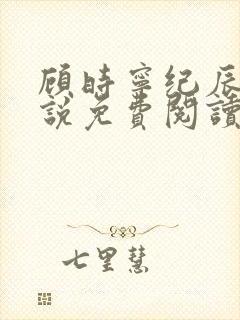 顾時寧纪辰
說免費閱讀
七里慧